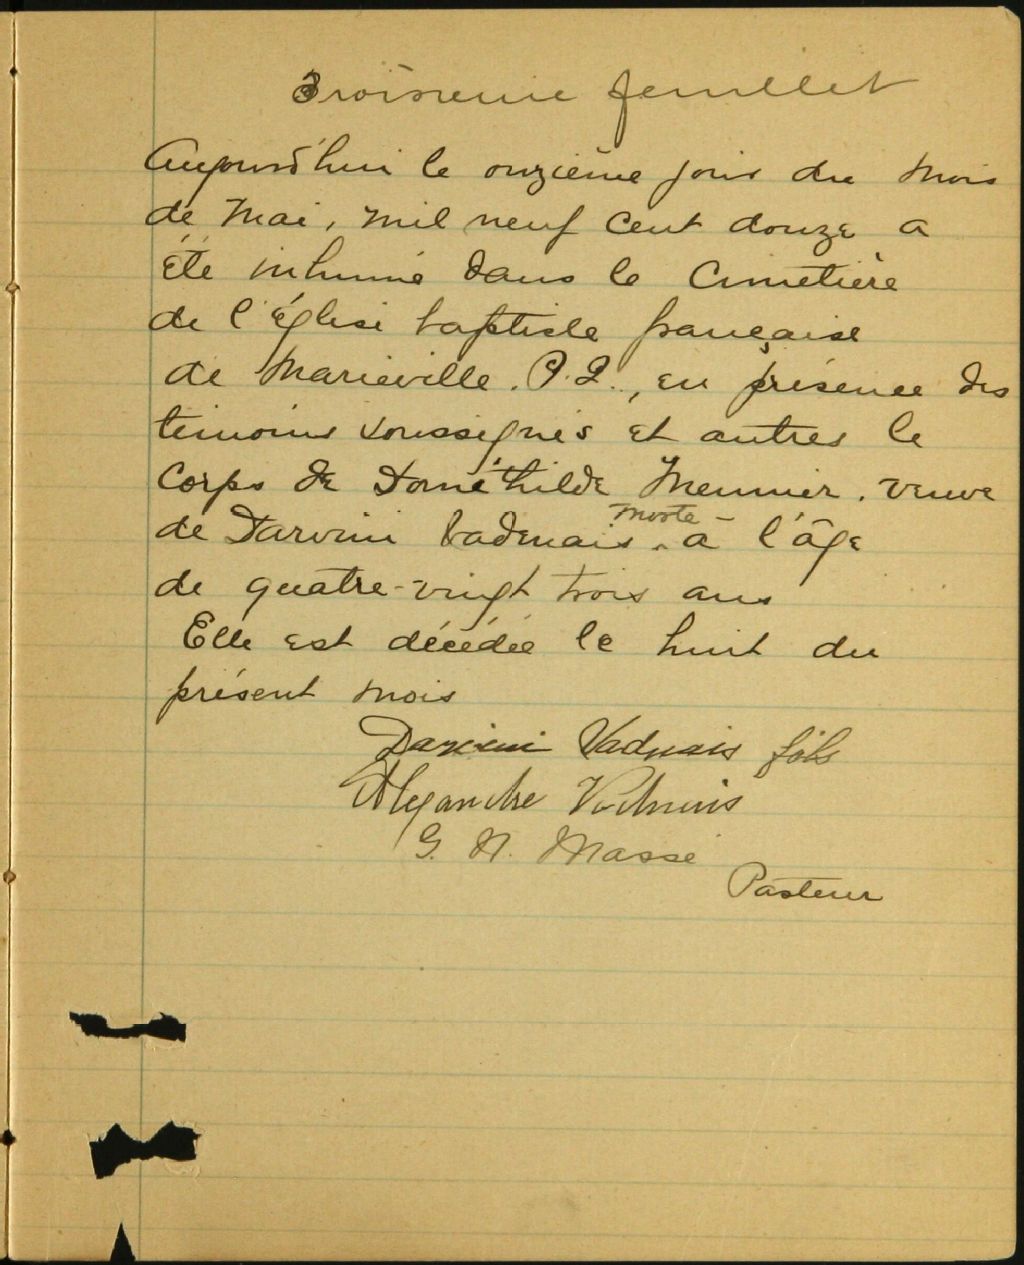 Troisieme feuillet
Aujourd'hui le onzième jour du mois
de Mai, mil neuf cent douze a
été inhumé dans le Cimetière
de l'Église baptiste française
de Marieville. P.Q., en présence des
temoins soussignés et autres le
Corps de Domethilde Meunier. veuve
de Darvini Vadnais morte à l'âge
de quatre-vingt trois ans
Elle est décédée le huit du
présent mois
Vadnais fils
Alexandre Vadnais
G. N. Masse
Pasteur